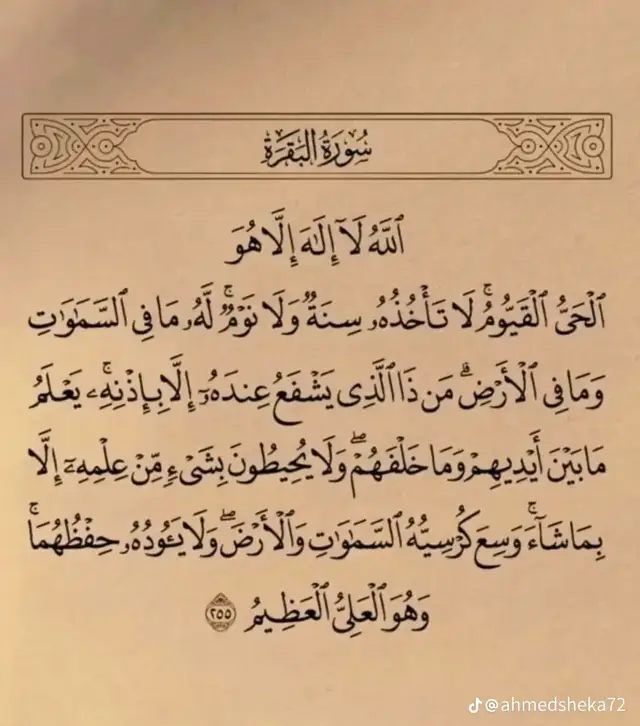 سُورَةُ الْبَقَرَةِ
ٱللَّهُ لَآ إِلَٰهَ إِلَّا هُوَ
ٱلْحَىُّ ٱلْقَيُّومُ ۚ لَا تَأْخُذُهُۥ سِنَةٌ وَلَا نَوْمٌ ۚ لَّهُۥ مَا فِى ٱلسَّمَٰوَٰتِ
وَمَا فِى ٱلْأَرْضِ ۗ مَن ذَا ٱلَّذِى يَشْفَعُ عِندَهُۥٓ إِلَّا بِإِذْنِهِۦ ۚ يَعْلَمُ
مَا بَيْنَ أَيْدِيهِمْ وَمَا خَلْفَهُمْ ۖ وَلَا يُحِيطُونَ بِشَىْءٍ مِّنْ عِلْمِهِۦٓ إِلَّا
بِمَا شَآءَ ۚ وَسِعَ كُرْسِيُّهُ ٱلسَّمَٰوَٰتِ وَٱلْأَرْضَ ۖ وَلَا يَـُٔودُهُۥ حِفْظُهُمَا ۚ
وَهُوَ ٱلْعَلِىُّ ٱلْعَظِيمُ ٢٥٥
@ahmedsheka72